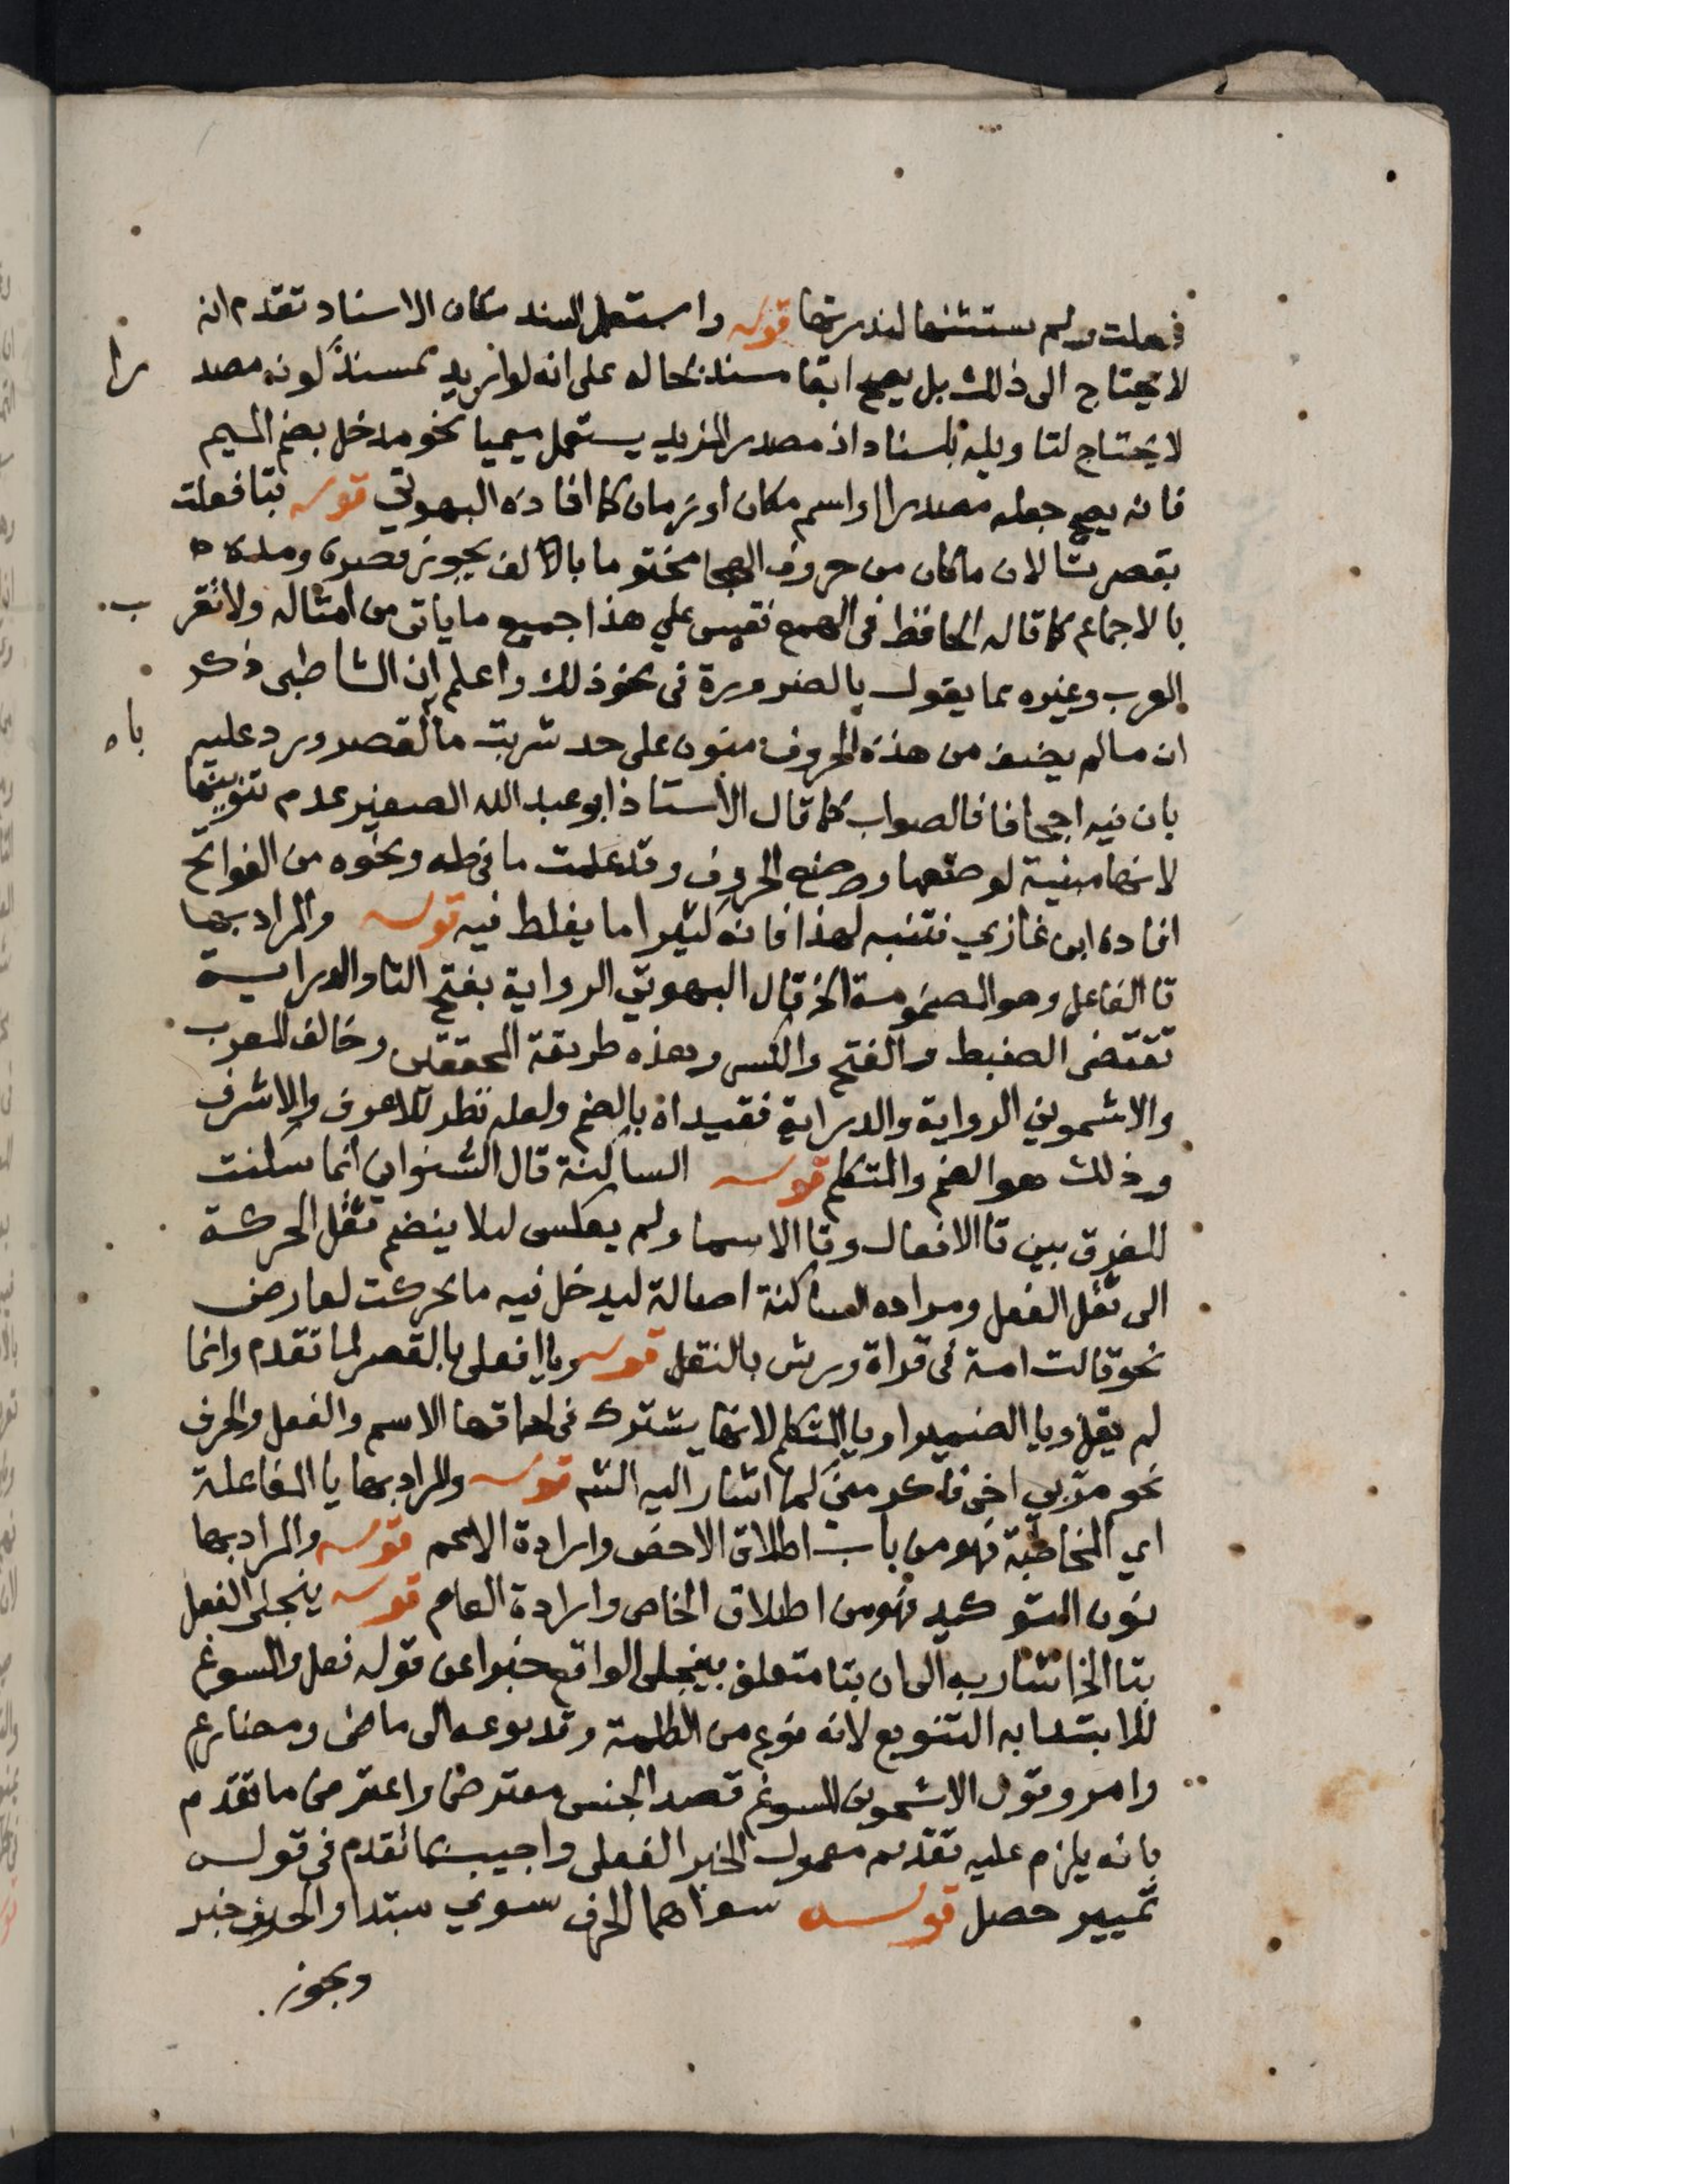 فعلت ولم يستثنها لندرتها قوله واستعمل المسند مكان الاسناد تقدم انه
لا يحتاج الى ذلك بل يصح ابقا مسند بحاله على انه لو اريد بمسند كونه مصد را
لا يحتاج لتاويله باسناد اذ مصدر المزيد يستعمل ميميا نحو مدخل بضم الميم
فانه يصح جعله مصدرا او اسم مكان او زمان كما افاده البهوتي قوله بتا فعلت
بقصر تا لان ما كان من حروف الهجا مختوما بالالف يجوز قصره ومده
بالاجماع كما قاله الحافظ في الهمع فقس علي هذا جميع ما ياتى من امثاله ولا تغتر ب
المعرب وغيره مما يقول بالضرورة فى نحو ذلك واعلم ان الشاطبى ذكر
ان ما لم يضف من هذه الحروف منون على حد شربت ما بالقصر ورد عليه باه
بان فيه اجحافا فالصواب كما قال الاستاذ ابو عبد الله الصغير عدم تنوينها
لانها مبنية لوضعها وضع الحروف وقد علمت ما فى طه ونحوه من الفواتح
افاده ابن غازي فتنبه لهذا فانه كثيرا ما يغلط فيه قوله والمراد بها
تا الفاعل وهو المضمومة الخ قال البهوتي الرواية بفتح التا والدراية
تقتضى الضبط والفتح والكسر وهذه طريقة المحققين وخالف المعرب
والاشمونى الرواية والدراية فقيداه بالضم ولعله نظر للاعرف والاشرف
وذلك هو الضم والمتكلم قوله الساكنة قال الشنوانى انما سكنت
للفرق بين تا الافعال وتا الاسما ولم يعكس ليلا ينضم ثقل الحركة
الى ثقل الفعل ومراده الساكنة اصالة ليدخل فيه ما تحركت لعارض
نحو قالت امة فى قراة ورش بالنقل قوله ويا افعلى بالقصر لما تقدم وانما
لم يقل ويا الضمير او يا المتكلم لانها يشترك فى لحاقها الاسم والفعل والحرف
نحو مربي اخى فاكرمنى كما اشار اليه الشه قوله والمراد بها يا الفاعلة
اي المخاطبة فهو من باب اطلاق الاخص وارادة الاعم قوله والمراد بها
نون التوكيد فهو من اطلاق الخاص وارادة العام قوله ينجلى الفعل
بتا الخ اشار به الى ان بتا متعلق بينجلى الواقع خبرا عن قوله فعل والمسوغ
للابتدا به التنويع لانه نوع من الكلمة وقد نوعه الى ماضى ومضارع
وامر وقول الاشمونى المسوغ قصد الجنس معترض واعترض ما تقدم
بانه يلزم عليه تقديم معمول الخبر الفعلى واجيب بما تقدم فى قوله
تمييز حصل قوله سواهما الحرف سوي مبتدا والحرف خبر
ويجوز